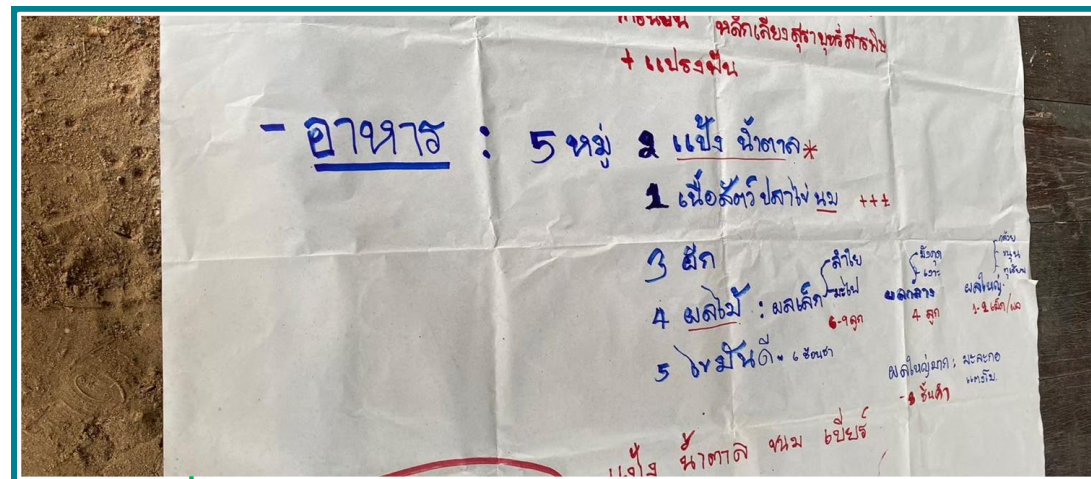 หลีกเลี่ยงสุราบุหรี่สารพิษ
+ แปรงฟัน
- อาหาร : 5 หมู่ 2 แป้ง น้ำตาล*
1 เนื้อสัตว์ ปลา ไข่ นม +++
3 ผัก
4 ผลไม้ : ผลเล็ก ลำไย มะไฟ 6-9 ลูก
ผลกลาง มังคุด เงาะ 4 ลูก
ผลใหญ่ กล้วย ขนุน ทุเรียน
5 ไขมันดี = 6 ช้อนชา
ผลใหญ่มาก : มะละกอ แตงโม
ชิ้นคำ
แป้ง น้ำตาล ขนม เบียร์